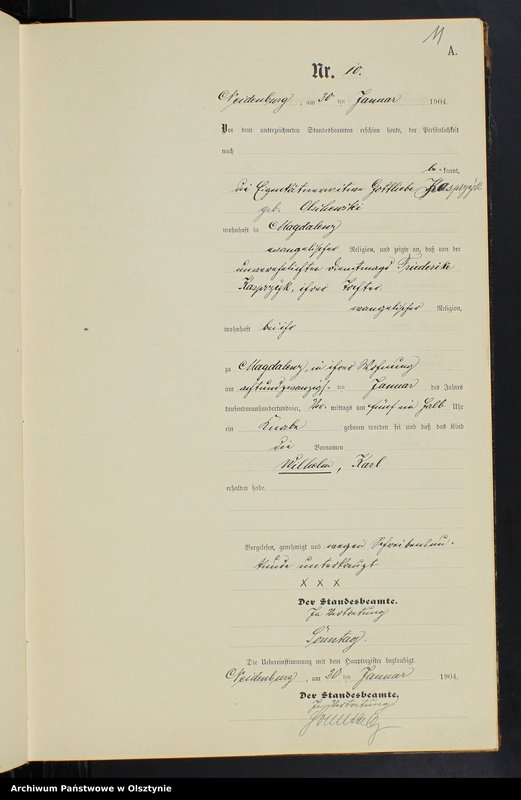 11
A.
Nr. 10.
Neidenburg, am 30 ten Januar 1904.
Vor dem unterzeichneten Standesbeamten erschien heute, der Persönlichkeit
nach
be- kannt,
die Eigenkätnerwitwe Gottliebe Kasprzyk
geb. Olschewski
wohnhaft in Magdalenz
evangelischer Religion, und zeigte an, daß von der
unverehelichten Dienstmagd Friederike
Kasprzyk, ihrer Tochter
evangelischer Religion,
wohnhaft bei ihr
zu Magdalenz, in ihrer Wohnung
am achtundzwanzigs- ten Januar des Jahres
tausendneunhundertundvier, Vor- mittags um fünf ein halb Uhr
ein Knabe geboren worden sei und daß das Kind
die Vornamen
Wilhelm, Karl
erhalten habe.
Vorgelesen, genehmigt und wegen Schreibensun-
kunde unterkreuzt.
x x x
Der Standesbeamte.
In Vertretung
Sonntag.
Die Uebereinstimmung mit dem Hauptregister beglaubigt.
Neidenburg, am 30 ten Januar 1904.
Der Standesbeamte.
In Vertretung
Archiwum Państwowe w Olsztynie